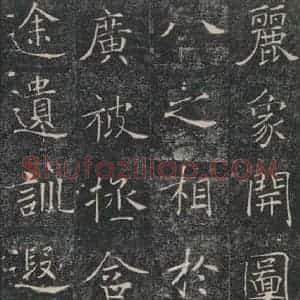 麗象開圖
八之相於
廣被拯含
途遺訓遐
Shufaziliao.COM